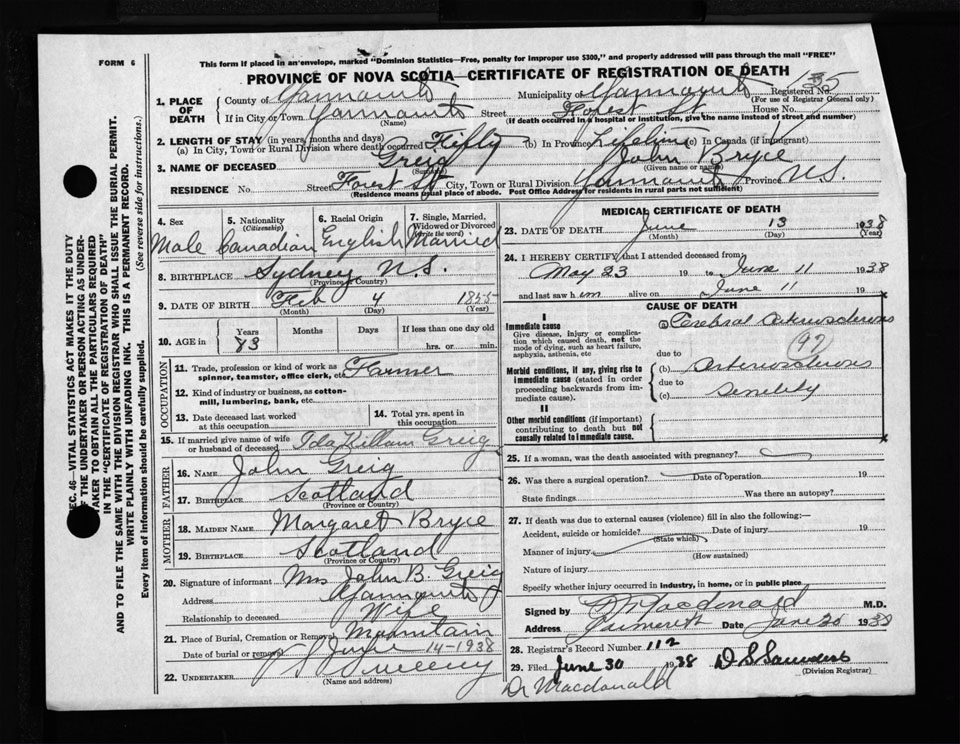 FORM 6
This form if placed in an envelope, marked "Dominion Statistics—Free, penalty for improper use $300," and properly addressed will pass through the mail "FREE"
PROVINCE OF NOVA SCOTIA—CERTIFICATE OF REGISTRATION OF DEATH
1. PLACE OF DEATH
County of Yarmouth Municipality of Yarmouth Registered No.
(For use of Registrar General only)
If in City or Town Yarmouth Street Forest St House No.
(Name) (If death occurred in a hospital or institution, give the name instead of street and number)
2. LENGTH OF STAY (in years, months and days)
(a) In City, Town or Rural Division where death occurred Fifty (b) In Province Lifetime (c) In Canada (if immigrant)
3. NAME OF DECEASED Greig John Bryce
(Surname) (Given name or names)
RESIDENCE No. Street Forest St City, Town or Rural Division Yarmouth Province N.S.
(Residence means usual place of abode. Post Office Address for residents in rural parts not sufficient)
4. Sex
Male
5. Nationality
(Citizenship)
Canadian
6. Racial Origin
English
7. Single, Married, Widowed or Divorced
(Write the word)
Married
8. BIRTHPLACE Sydney N.S.
(Province or Country)
9. DATE OF BIRTH Feb 4 1855
(Month) (Day) (Year)
10. AGE in
Years Months Days If less than one day old
83 hrs. or min.
OCCUPATION
11. Trade, profession or kind of work as spinner, teamster, office clerk, etc. Farmer
12. Kind of industry or business, as cotton-mill, lumbering, bank, etc.
13. Date deceased last worked at this occupation
14. Total yrs. spent in this occupation
15. If married give name of wife or husband of deceased Ida Killam Greig
FATHER
16. NAME John Greig
17. BIRTHPLACE Scotland
(Province or Country)
MOTHER
18. MAIDEN NAME Margaret Bryce
19. BIRTHPLACE Scotland
(Province or Country)
20. Signature of informant Mrs John B. Greig
Address Yarmouth
Relationship to deceased Wife
21. Place of Burial, Cremation or Removal Mountain
Date of burial or removal June 14-1938
22. UNDERTAKER Sweeny
(Name and address)
MEDICAL CERTIFICATE OF DEATH
23. DATE OF DEATH June 13 1938
(Month) (Day) (Year)
24. I HEREBY CERTIFY that I attended deceased from
May 23 19 to June 11 1938
and last saw him alive on June 11 19
CAUSE OF DEATH
I
Immediate cause
Give disease, injury or complication which caused death, not the mode of dying, such as heart failure, asphyxia, asthenia, etc
(a) Cerebral Arteriosclerosis
(97)
due to
Morbid conditions, if any, giving rise to immediate cause (stated in order proceeding backwards from immediate cause).
(b) Arteriosclerosis
due to
(c) Senility
II
Other morbid conditions (if important) contributing to death but not causally related to immediate cause.
25. If a woman, was the death associated with pregnancy?
26. Was there a surgical operation? Date of operation 19
State findings Was there an autopsy?
27. If death was due to external causes (violence) fill in also the following:—
Accident, suicide or homicide? Date of injury 19
(State which)
Manner of injury
(How sustained)
Nature of injury
Specify whether injury occurred in industry, in home, or in public place.
Signed by Macdonald M.D.
Address Yarmouth Date June 20 1938
28. Registrar's Record Number 112
29. Filed June 30 1938 D S Saunders
(Division Registrar)
Dr Macdonald
SEC. 46—VITAL STATISTICS ACT MAKES IT THE DUTY
OF THE UNDERTAKER OR PERSON ACTING AS UNDER-
TAKER TO OBTAIN ALL THE PARTICULARS REQUIRED
IN THE "CERTIFICATE OF REGISTRATION OF DEATH"
AND TO FILE THE SAME WITH THE DIVISION REGISTRAR WHO SHALL ISSUE THE BURIAL PERMIT.
WRITE PLAINLY WITH UNFADING INK. THIS IS A PERMANENT RECORD.
Every item of information should be carefully supplied. (See reverse side for instructions.)